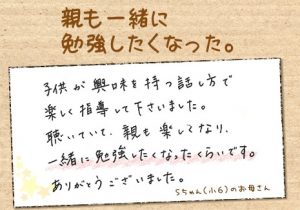 親も一緒に
勉強したくなった。
子供が興味を持つ話し方で
楽しく指導して下さいました。
聴いていて、親も楽してなり、
一緒に勉強したくなったくらいです。
ありがとうございました。
Sちゃん(小6)のお母さん